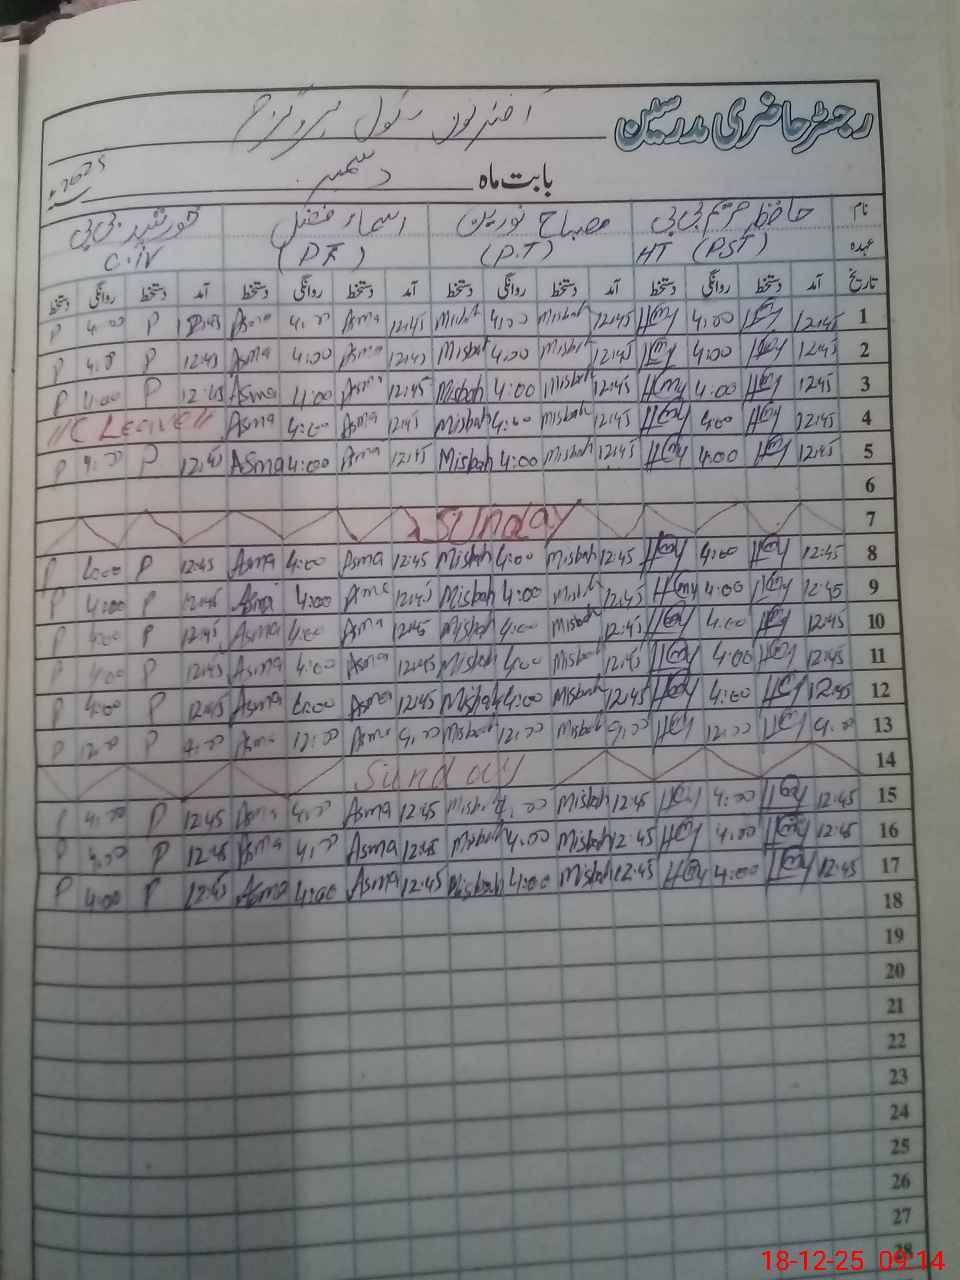 رجسٹر حاضری مدرسین آفٹرنون سکول پروگرام
بابت ماہ دسمبر 2025ء
نام حافظ مریم بی بی مصباح نورین اسماء فضل خورشید بی بی
عہدہ HT (PST) (P.T) C.iv
تاریخ آمد دستخط روانگی دستخط آمد دستخط روانگی دستخط آمد دستخط روانگی دستخط آمد دستخط روانگی دستخط
P 4:00 P 12:45 Asma 4:00 Asma 12:45 Misbah 4:00 Misbah 12:45 4:00 12:45 1
P 4:0 P 12:45 Asma 4:00 Asma 12:45 Misbah 4:00 Misbah 12:45 4:00 12:45 2
P 4:00 P 12:45 Asma 4:00 Asma 12:45 Misbah 4:00 Misbah 12:45 4:00 12:45 3
//C Leave// Asma 4:00 Asma 12:45 Misbah 4:00 Misbah 12:45 4:00 12:45 4
P 4:00 P 12:45 Asma 4:00 Asma 12:45 Misbah 4:00 Misbah 12:45 4:00 12:45 5
6
Sunday 7
P 4:00 P 12:45 Asma 4:00 Asma 12:45 Misbah 4:00 Misbah 12:45 4:00 12:45 8
P 4:00 P 12:45 Asma 4:00 Asma 12:45 Misbah 4:00 Misbah 12:45 4:00 12:45 9
P 4:00 P 12:45 Asma 4:00 Asma 12:45 Misbah 4:00 Misbah 12:45 4:00 12:45 10
P 4:00 P 12:45 Asma 4:00 Asma 12:45 Misbah 4:00 Misbah 12:45 4:00 12:45 11
P 4:00 P 12:45 Asma 4:00 Asma 12:45 Misbah 4:00 Misbah 12:45 4:00 12:45 12
P 12:00 P 9:00 Asma 12:00 Asma 9:00 Misbah 12:00 Misbah 9:00 12:00 9:00 13
Sunday 14
P 4:00 P 12:45 Asma 4:00 Asma 12:45 Misbah 4:00 Misbah 12:45 4:00 12:45 15
P 4:00 P 12:45 Asma 4:00 Asma 12:45 Misbah 4:00 Misbah 12:45 4:00 12:45 16
P 4:00 P 12:45 Asma 4:00 Asma 12:45 Misbah 4:00 Misbah 12:45 4:00 12:45 17
18
19
20
21
22
23
24
25
26
27
28
18-12-25 09:14